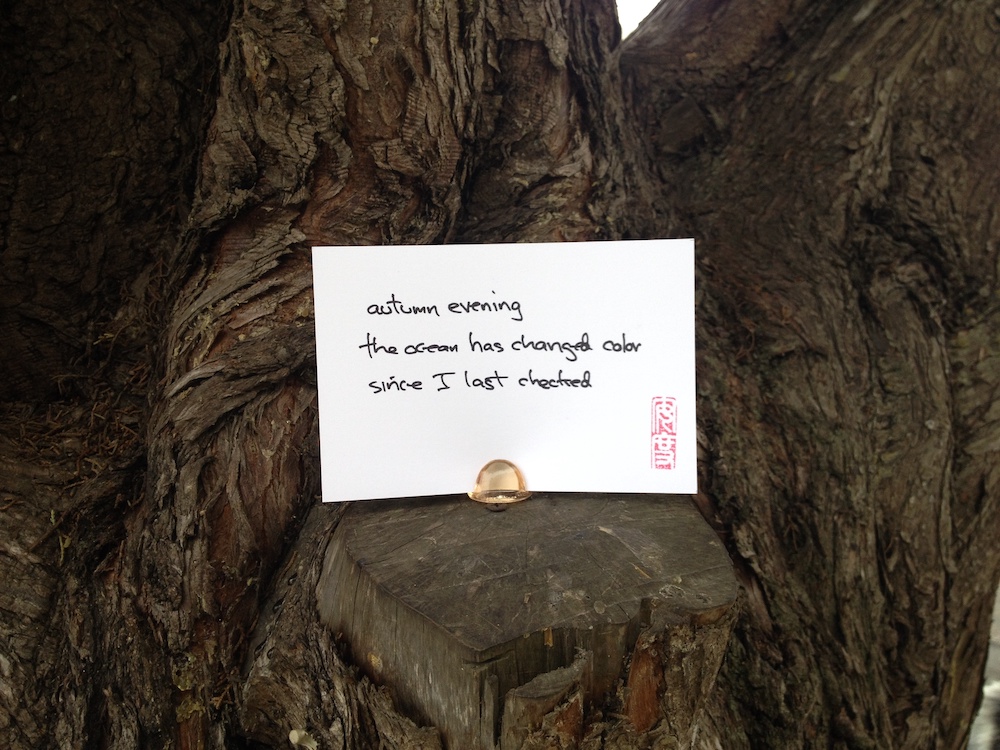 autumn evening
the ocean has changed color
since I last checked